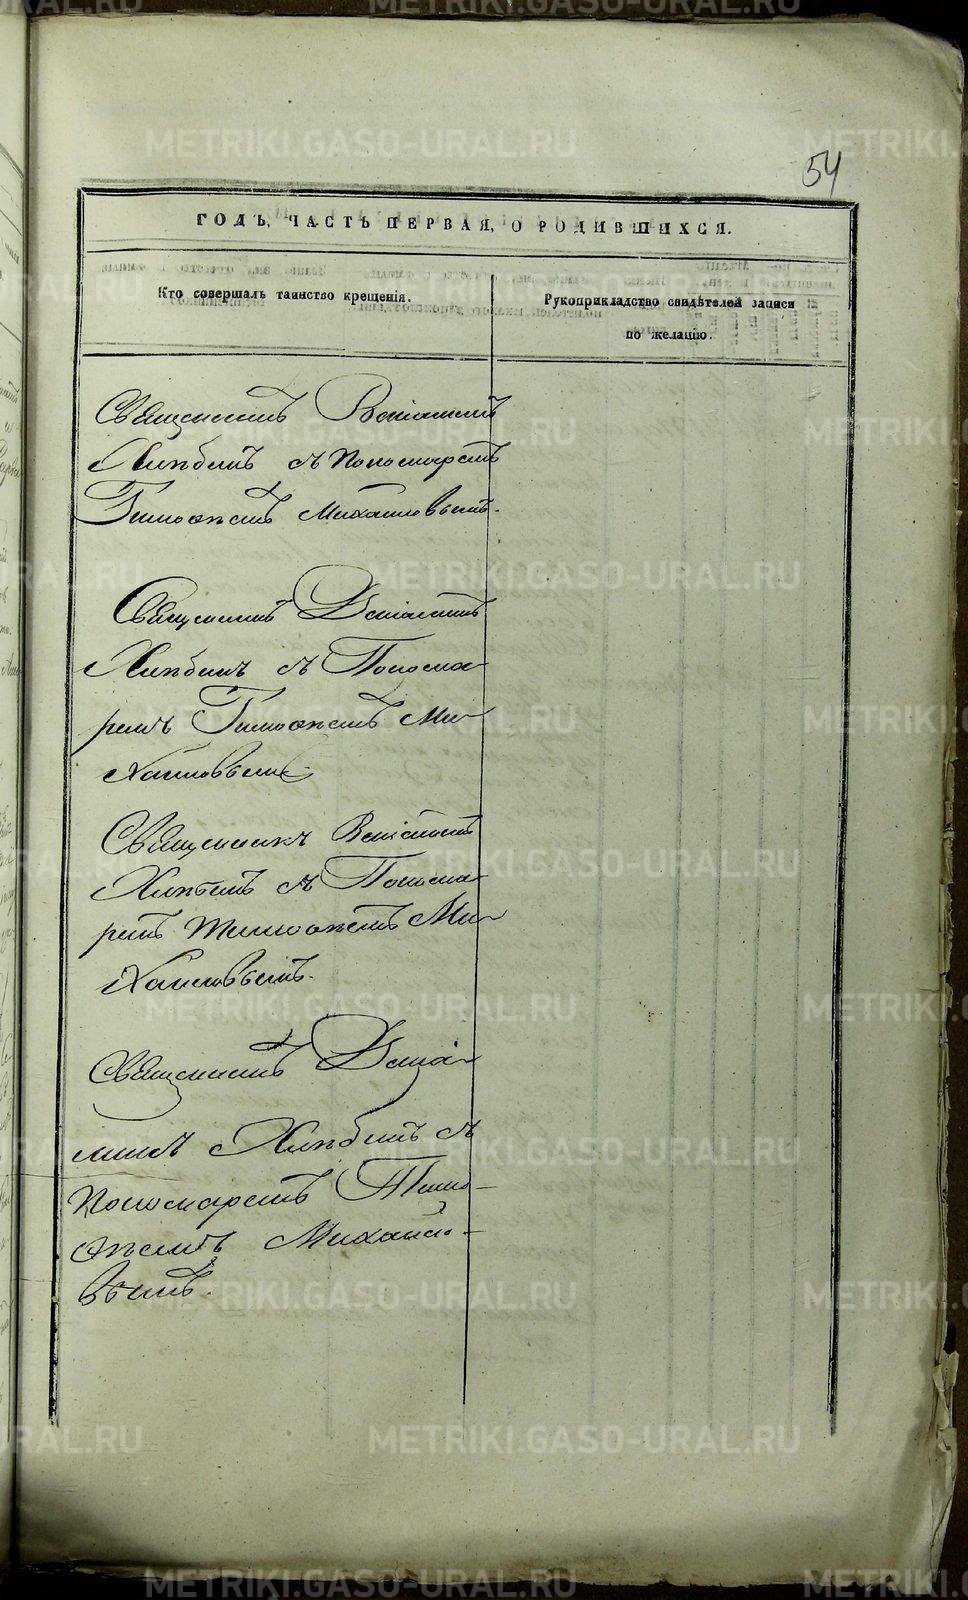 54
ГОДЪ, ЧАСТЬ ПЕРВАЯ, О РОДИВШИХСЯ.
Кто совершалъ таинство крещенія.
Рукоприкладство свидѣтелей записи
по желанію.
Священникъ Веніаминъ
Хлѣбинъ съ Пономаремъ
Тимоѳѣемъ Михайловымъ.
Священникъ Веніаминъ
Хлѣбинъ съ Понома-
ремъ Тимоѳѣемъ Ми-
хайловымъ
Священникъ Веніаминъ
Хлѣбинъ съ Понома-
ремъ Тимоѳѣемъ Ми-
хайловымъ.
Священникъ Веніа-
минъ Хлѣбинъ съ
Пономаремъ Тимо-
ѳѣемъ Михайло-
вымъ.
METRIKI.GASO-URAL.RU